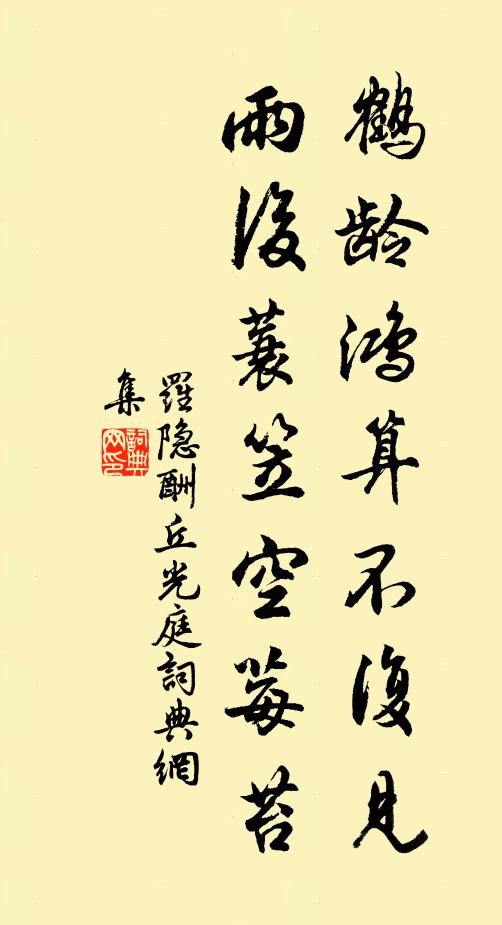 鶴龄鴻算不復見
雨後蓑笠空莓苔
羅隐酬丘光庭詞典網
集
詞典
网印